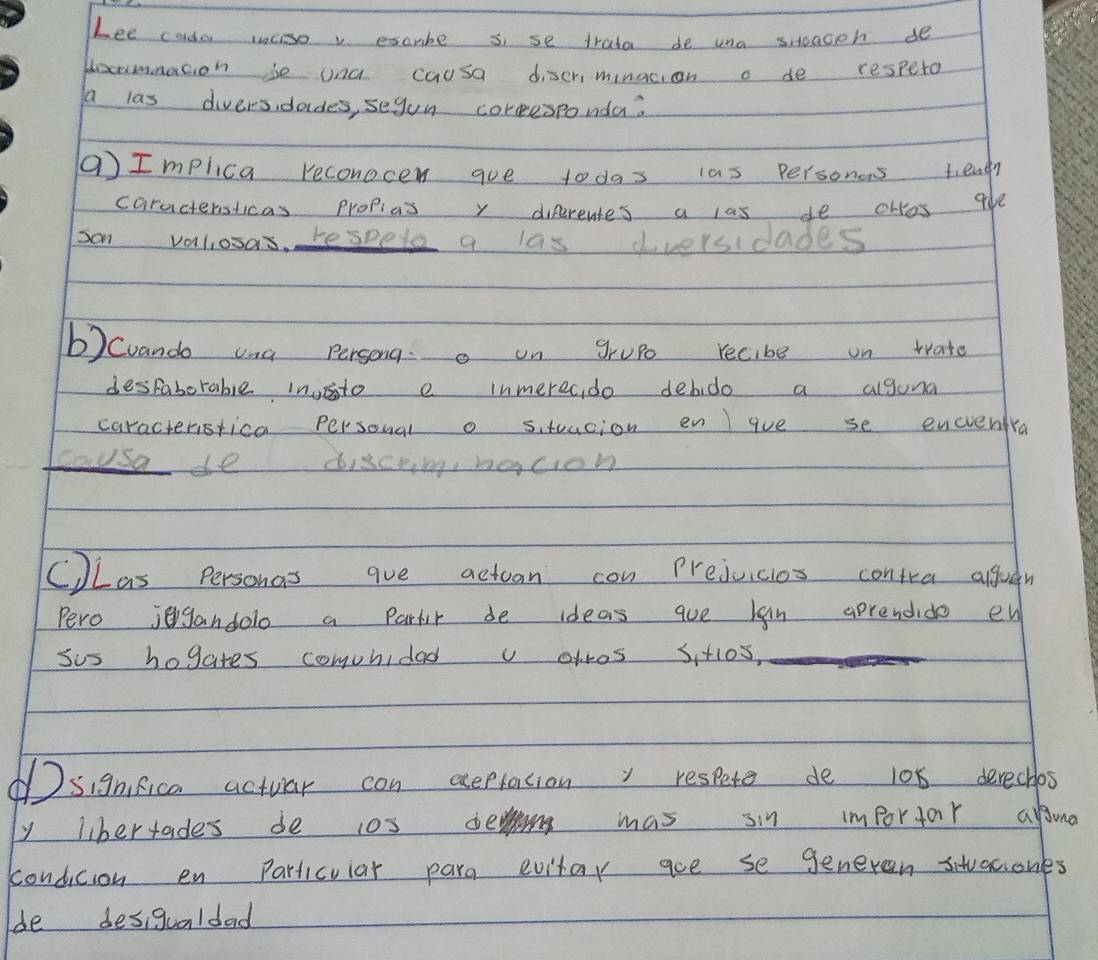 Lee cada inciso y escribe si se trata de una sitoacen de
discriminacion de una causa discriminacion o de respeto
a las diversidades, segun correesponda:
a) Implica reconocer que todas las Personas tienen
caracteristicas Propias y diferentes a las de otros que
son valiosas. respeto a las diversidades
b) Cuando una Persona o un grupo recibe un trato
desfaborable injusto e inmerecido debido a alguna
caracteristica Personal o situacion en que se encuentra
causa de discriminacion
c) Las Personas que actuan con Prejuicios contra alguien
Pero jugandolo a Partir de ideas que han aprendido en
sus hogares comunidad u otros sitios.
d) significa actuar con aceptacion y respeto de los derechos
y libertades de los de mas sin importar alguna
condicion en Particular para evitar que se generen situaciones
de desigualdad